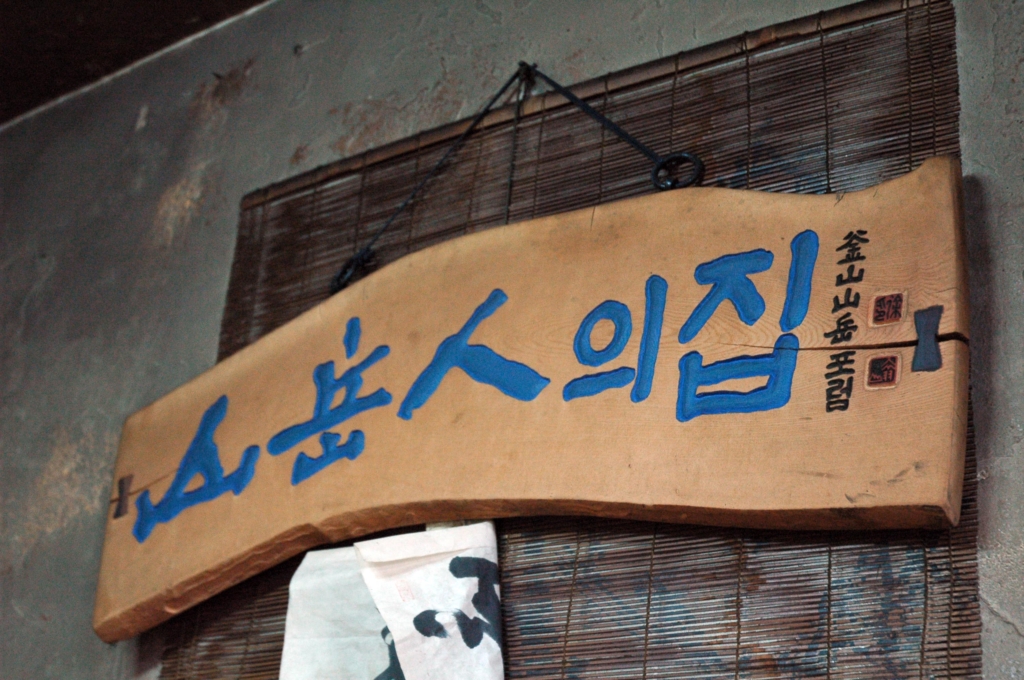 山岳人의집
釜山山岳포럼